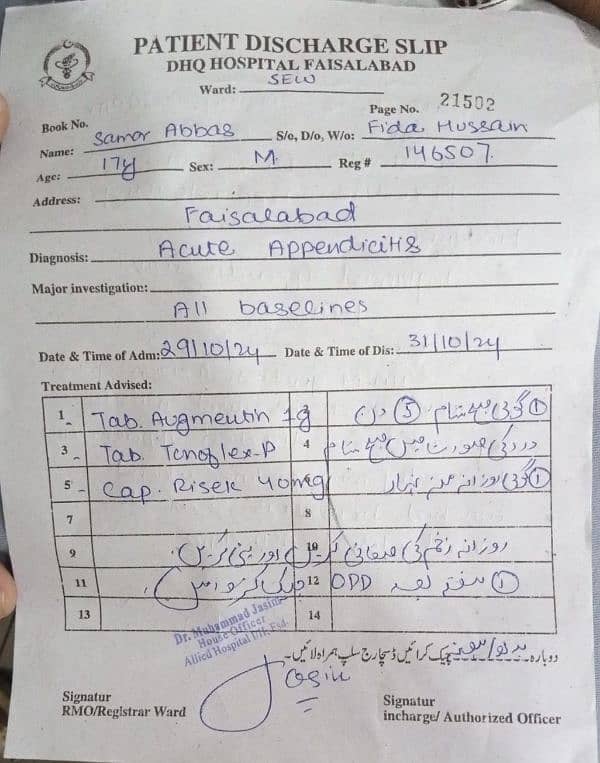 PATIENT DISCHARGE SLIP
DHQ HOSPITAL FAISALABAD
Ward: SEW
Book No. Page No. 21502
Name: Samar Abbas S/o, D/o, W/o: Fida Hussain
Age: 17y Sex: M. Reg # 146507.
Address:
Faisalabad
Diagnosis: Acute Appendicitis
Major investigation:
All baselines
Date & Time of Adm: 29/10/24 Date & Time of Dis: 31/10/24
Treatment Advised:
1 Tab. Augmentin 1g ① گولی صبح شام ⑤ دن
3 Tab. Tonoflex-P 4 درد کی صورت میں صبح شام
5 Cap. Risek 40mg ① گولی روزانہ نہار
7 8
9 10 روزانہ زخم کی صفائی کریں اور پٹی کریں
11 12 ① ہفتے بعد OPD چیک کروائیں
13 14
Dr. Muhammad Jasim
House Officer
Allied Hospital Fsd.
دوبارہ چیک کرائیں ڈسچارج سلپ ہمراہ لائیں۔
Signatur
RMO/Registrar Ward
Signatur
incharge/ Authorized Officer